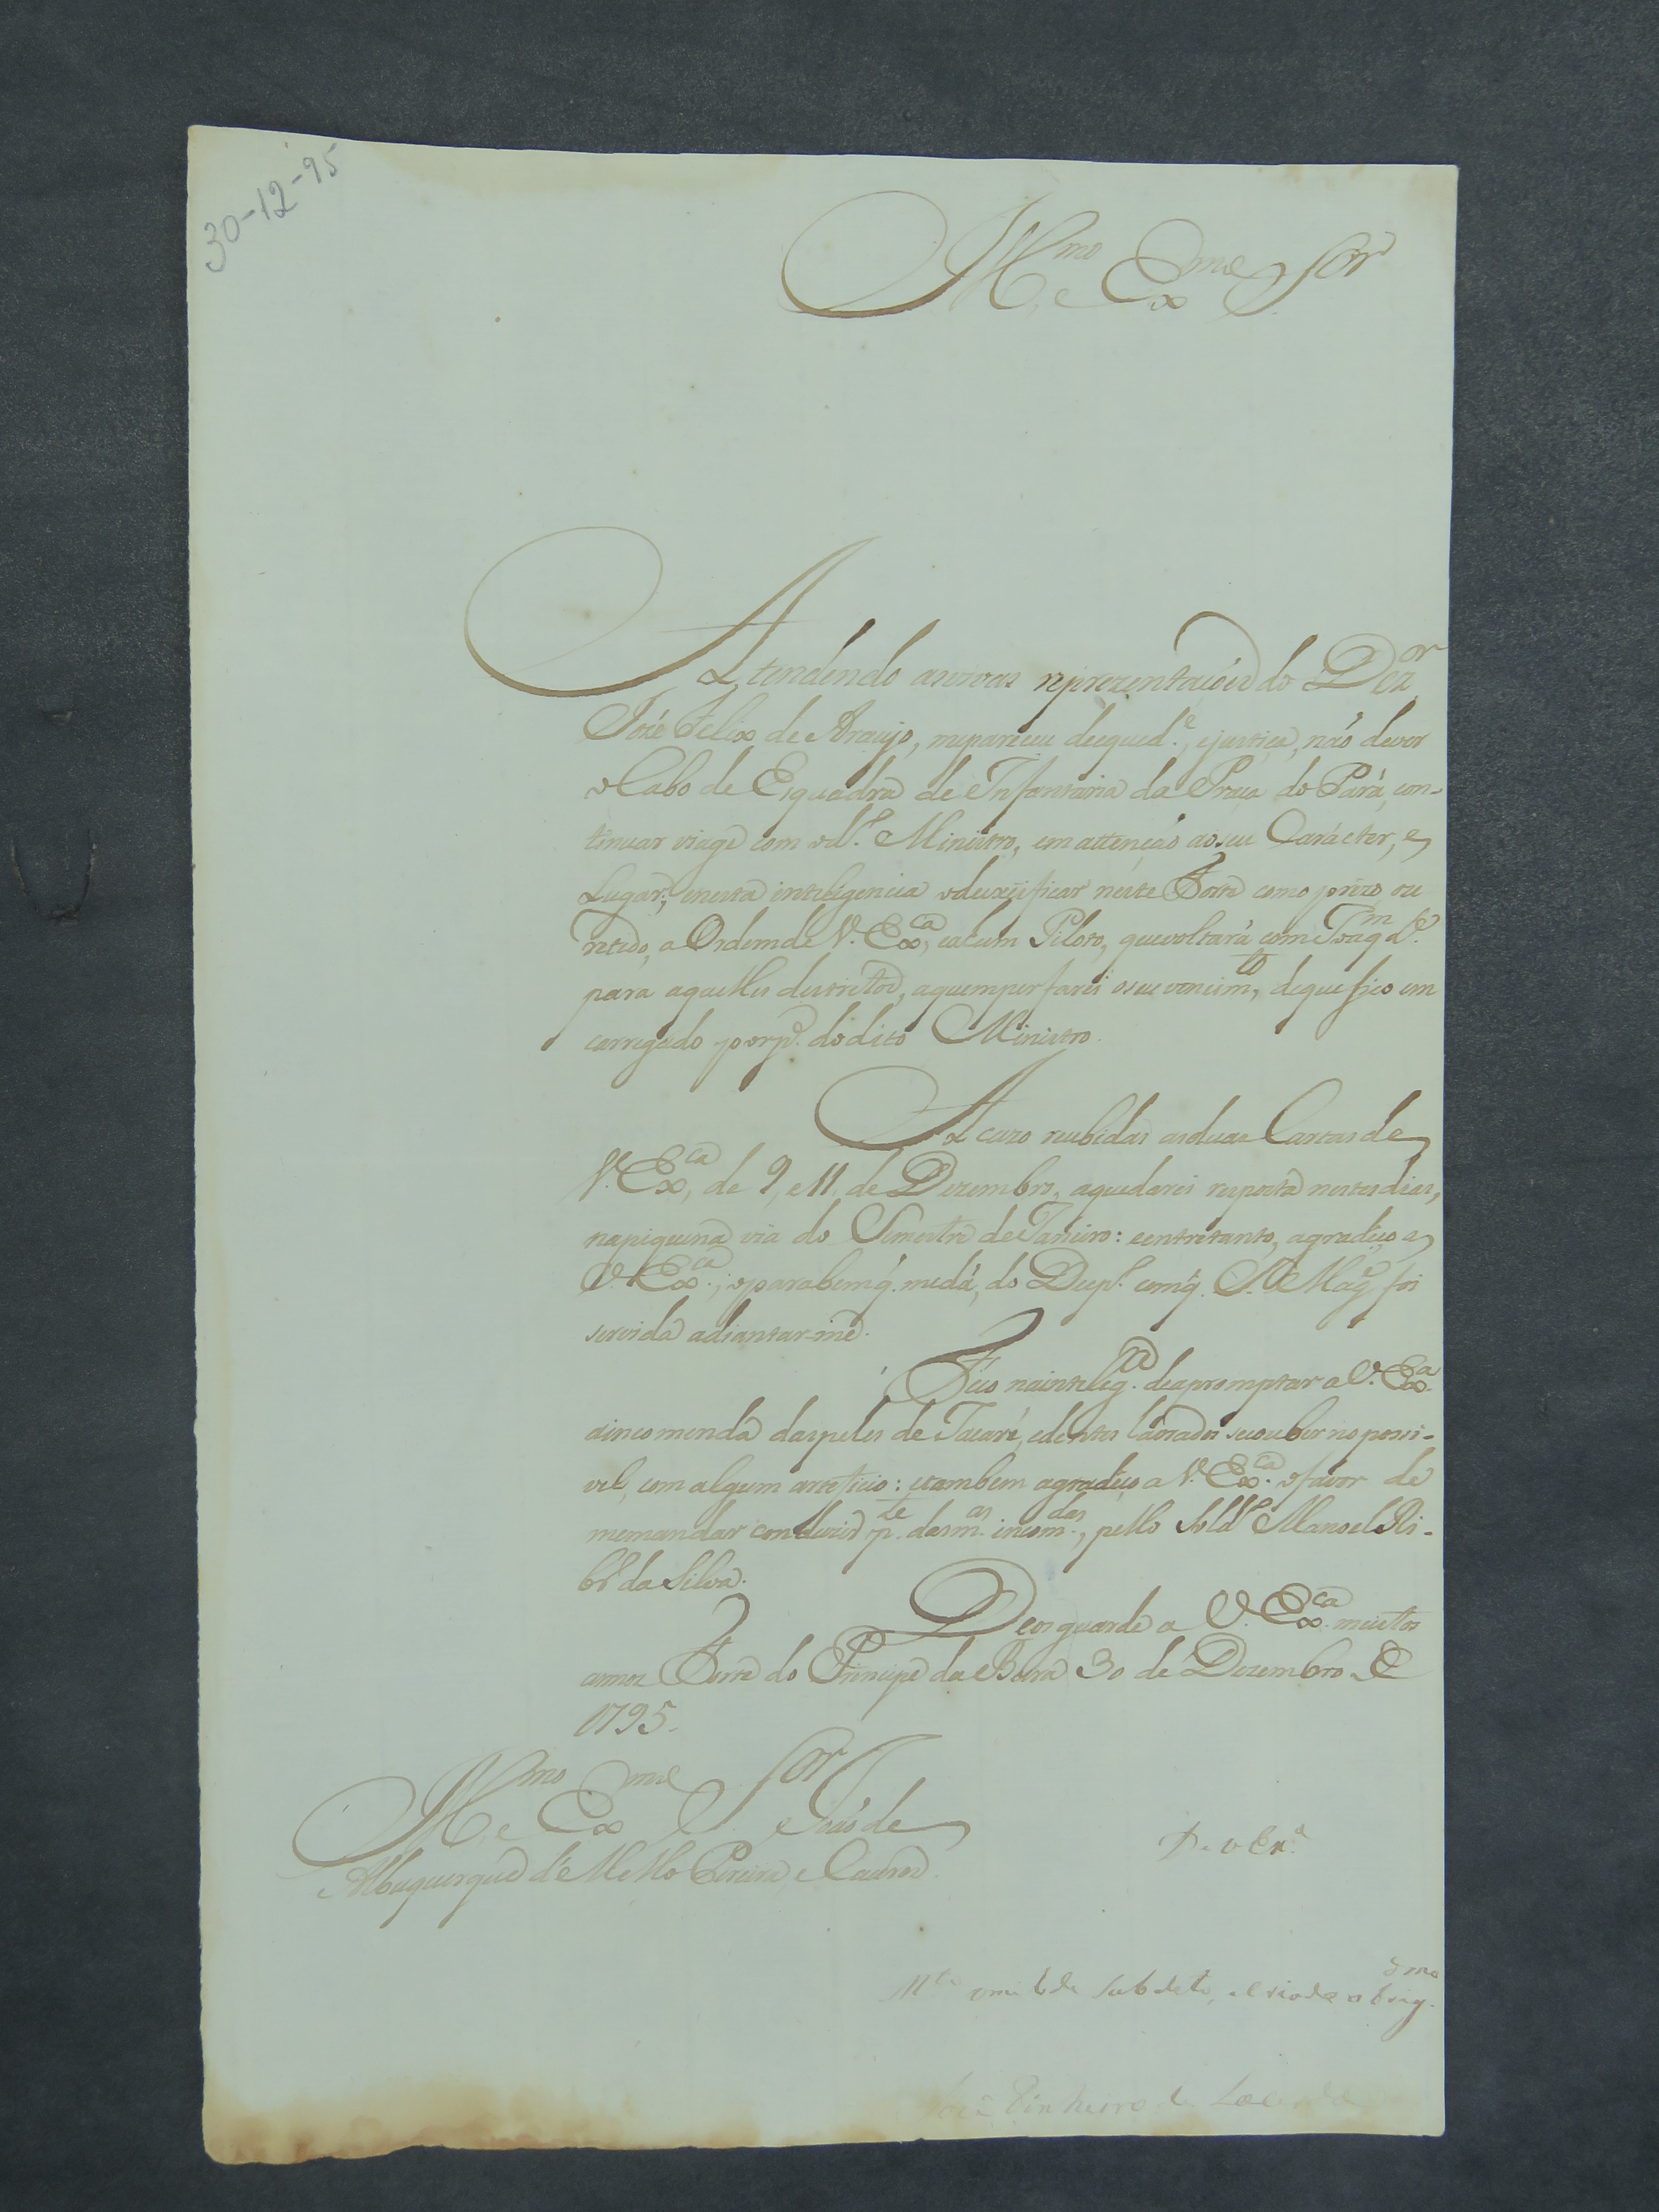 30-12-95
Ill.mo e Ex.mo S.or
Attendendo as vivas reprezentaçoẽs do Dez.or
Jozé Felix de Araujo, me pareceu de equid.e, e justiça, não dever
o Cabo de Esquadra de Infantaria da Praça do Pará, con-
tinuar viage com o d.o Ministro, em attenção ao seu Carácter, e
Lugar; e nesta inteligencia o deixei ficar neste Forte como prezo ou
retido, a Ordem de V. Ex.ca, e a hum Piloto, que voltará com
para aquelles destrictos, a quem perfarei o seu vencim.to, de que fico em
carregado por p.e do dito Ministro.
Acuzo recebidas as duas Cartas de
V. Ex.ca, de 9, e 11 de Dezembro, a que darei resposta nestes dias,
na piquena via do Semestre de Janeiro: e entretanto, agradeço a
V. Ex.ca, o parabem q. me dá, do Desp.o com q. S. Mag.e foi
servida adiantar-me.
Fico na intelig.ca de apromptar a V. Ex.ca
a incomenda das peles de Jacaré, e dentes lavrados se couber no possi-
vel, com algum artificio: e tambem agradeço a V. Ex.ca o favor de
me mandar conduzir p.te das m.as incom.das, pello Sold.o Manoel Ri-
br.o da Silva.
Deos guarde a V. Ex.ca muitos
annos Forte do Principe da Beira 30 de Dezembro de
1795.
Ill.mo e Ex.mo S.or João de
Albuquerque de Mello Pereira e Caceres
De V. Ex.a
M.to umilde subdito, e criado obrig.dmo
Joze Pinheiro de Lacerda